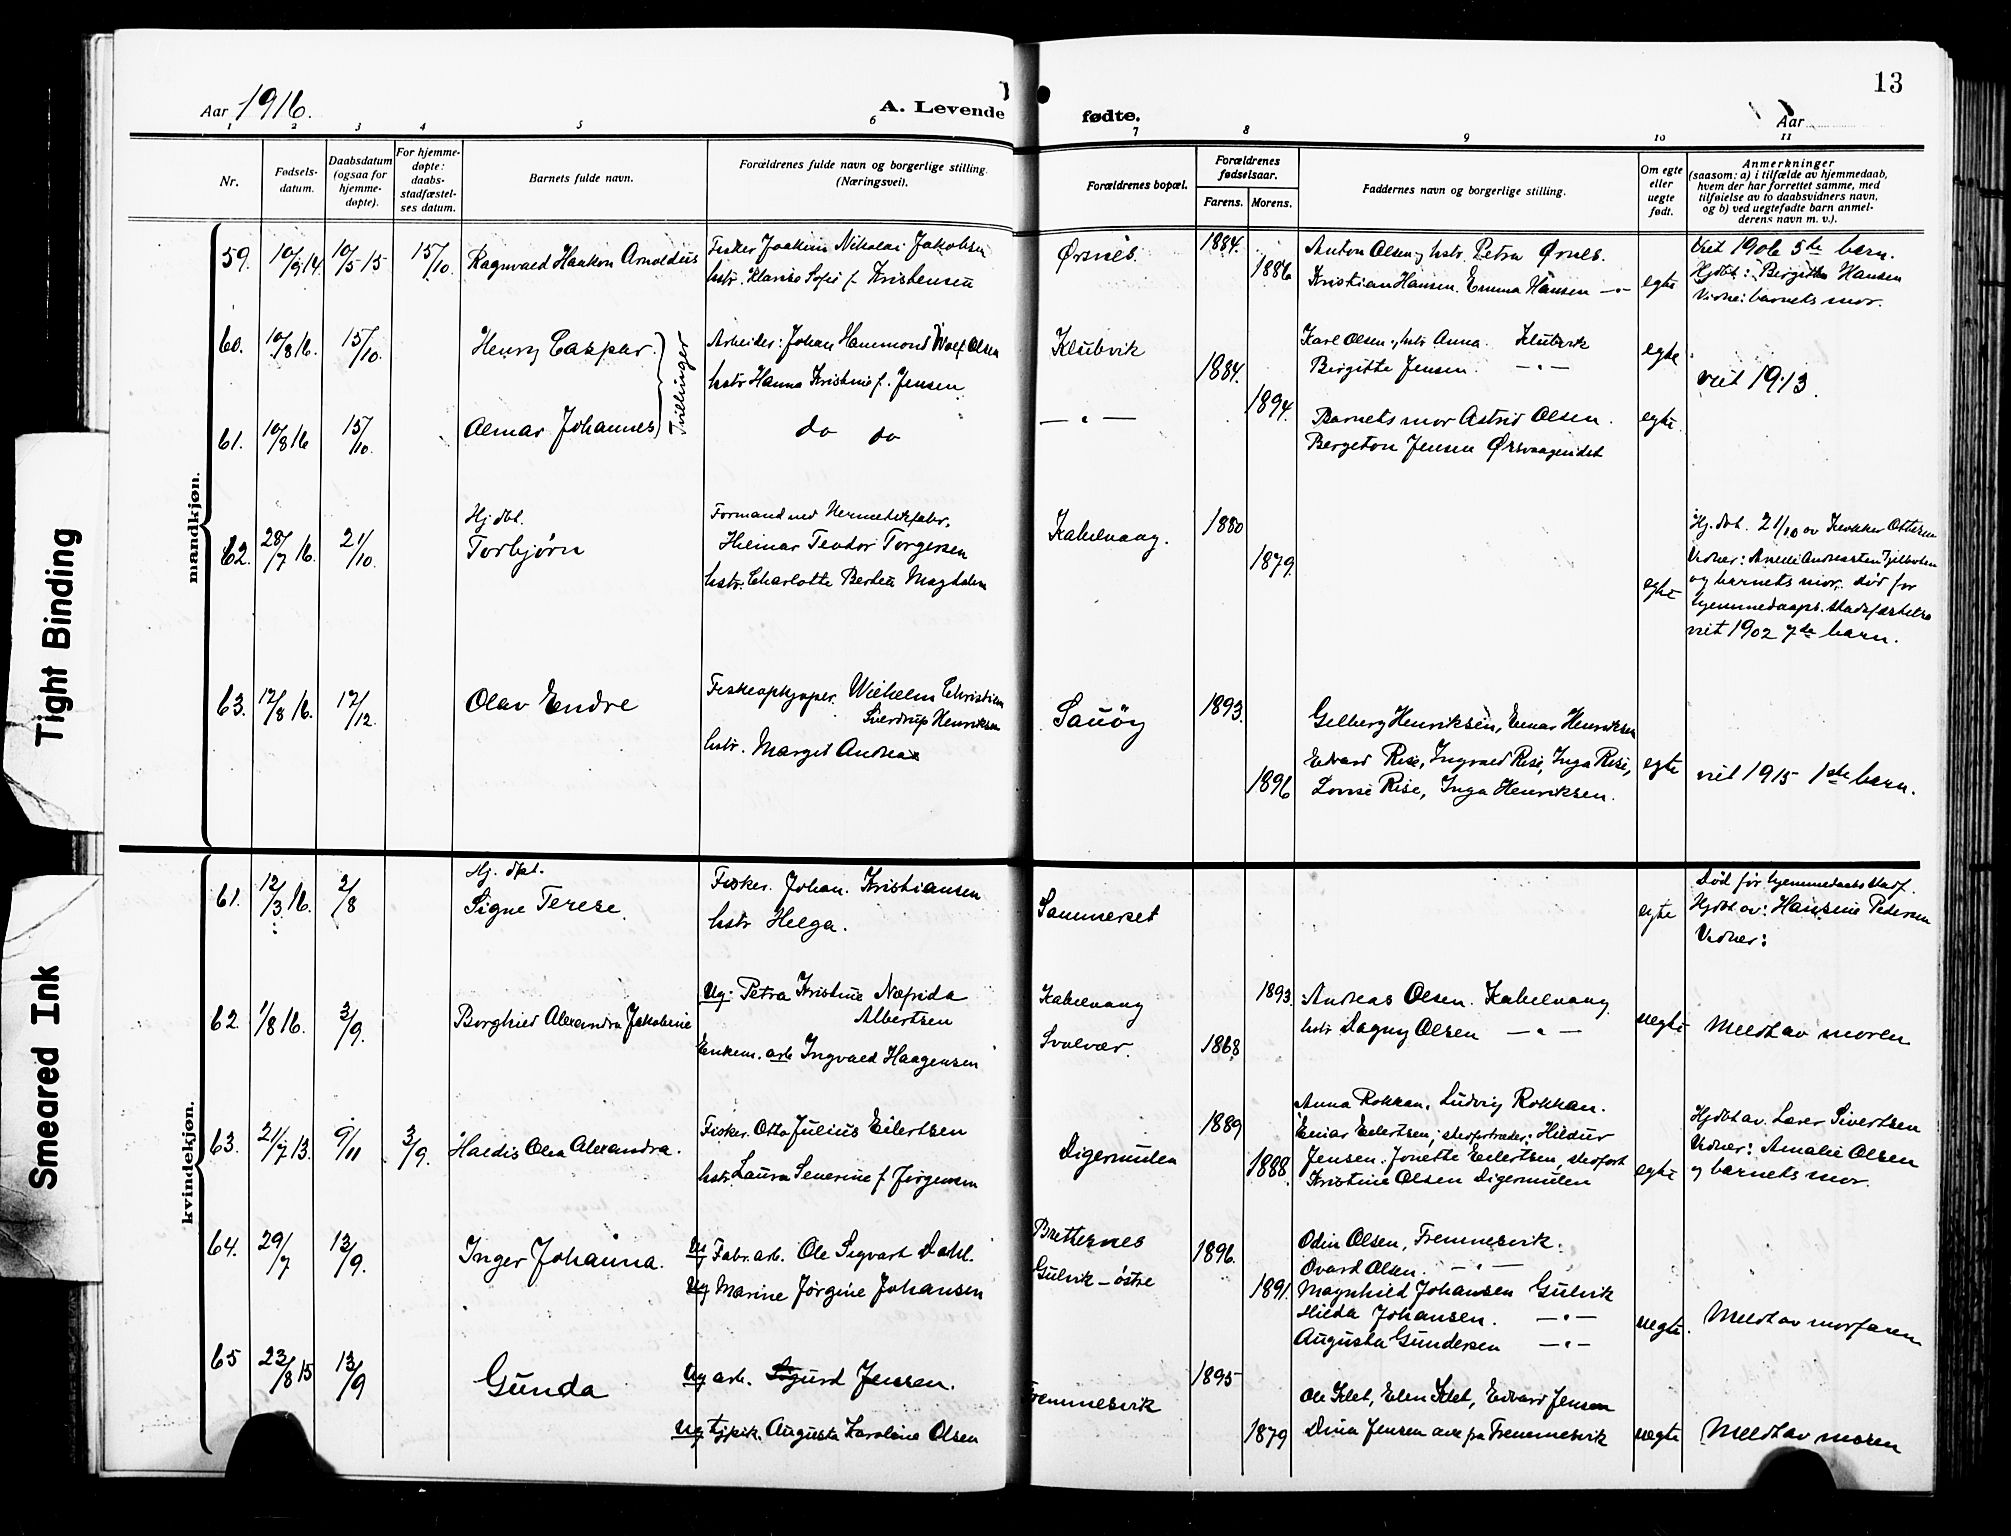 13
Aar 1916.
A. Levende fødte.
Aar
1 2 3 4 5 6 7 8 9 10 11
Nr.
Fødsels-
datum.
Daabsdatum
(ogsaa for
hjemme-
døpte).
For hjemme-
døpte:
daabs-
stadfæstel-
ses datum.
Barnets fulde navn.
Forældrenes fulde navn og borgerlige stilling.
(Næringsvei).
Forældrenes bopæl.
Forældrenes
fødselsaar.
Farens. Morens.
Faddernes navn og borgerlige stilling.
Om egte
eller
uegte
født.
Anmerkninger
(saasom: a) i tilfælde av hjemmedaab,
hvem der har forrettet samme, med
tilføielse av to daabsvidners navn,
og b) ved uegtefødte barn anmel-
derens navn m. v.).
mandkjøn.
59. 10/9 14 10/5 15 15/10. Ragnvald Haakon Arnoldus
Fisker Joakim Nikolai Jakobsen
hstr. Klarise Sofie f. Kristensen
Ørsnes. 1884. 1886
Anton Olsen og hstr. Petra Ørnes.
Kristian Hansen. Emma Hansen — " —
egte
Viet 1906 5te barn.
Hjdbt: Birgitte Hansen
Vidne: barnets mor.
60. 10/8 16. 15/10. Henry Caspar.
Tvillinger
Arbeider: Johan Hammond Wolf Olsen
hstr Hanna Kristine f. Jensen
Klubvik 1884. 1894.
Karl Olsen og hstr Anna. Klubvik
Birgitte Jensen. — " —
egte
viet 1913.
61. 10/8 16 15/10. Almar Johannes
do do
— " —
Barnets mor Astrid Olsen.
Bergeton Jensen Ørsvaagvidet
egte.
62. 28/7 16. 21/10. Hj. dbt.
Torbjørn
Formand ved Hermetikfabr.
Hilmar Teodor Torgersen
hstr. Charlotte Bertea Magdalena
Kabelvaag. 1880 1879.
egte
Hj. dbt. 21/10 av Klokker Ottesen
Vidner:
og barnets mor. død før
hjemmedaaps. stadfæstelse
viet 1902 7de barn.
63. 12/8 16. 17/12. Olav Endre
Fiskeopkjøper. Wilhelm Christian
Sverdrup Henriksen
hstr. Margit Andrea
Sauøy 1893. 1896
Gelberg Henriksen, Einar Henriksen
Edvard Rise, Ingvald Rise, Inga Rise,
Lovise Rise, Inga Henriksen.
egte
viet 1915 1ste barn.
kvindekjøn.
61. 12/3 16. 2/8 Hj. dbt.
Signe Terese.
Fisker. Johan. Kristiansen
hstr Helga.
Sammerset
egte
Død før hjemmedaabs stadf.
Hjdbt av: Hansine Pedersen
Vidner:
62. 1/8 16. 3/9. Borghild Alexandra Jakobine
Ug. Petra Kristine Næfrida
Albertsen
Enkem. arb Ingvald Haagensen
Kabelvaag
Svolvær. 1893. 1868
Andreas Olsen. Kabelvaag
hstr Dagny Olsen — " —
uegte
Meldt av moren
63. 21/7 13. 9/11 3/9. Haldis Olea Alexandra.
Fisker. Otto Julius Eilertsen
hstr. Laura Severine f Jørgensen
Digermulen 1889 1888.
Anna Rokkan, Ludvig Rokkan.
Einar Eilertsen; stedfortræder: Hildur
Jensen. Jonette Eilertsen, stedfort
Kristine Olsen Digermulen
egte
Hjdbt av. Lærer Sivertsen
Vidner: Amalie Olsen
og barnets mor.
64. 29/7 13/9. Inger Johanna.
Ug Fabr. arb. Ole Sigvart Dahl.
Ug Marine Jørgine Johansen
Brettesnes
Gulvik - østre 1896. 1891.
Odin Olsen, Fremnesvik.
Ovard Olsen. — " —
Magnhild Johansen Gulvik
Hilda Johansen. — " —
Augusta Gundersen — " —
uegte.
Meldt av morfaren
65 23/8 15 13/9 Gunda
Ug arb. Sigurd Jensen.
Ug tjpik. Augusta Karoline Olsen
Fremnesvik 1895 1879
Ole Klet, Elen Klet, Edvard Jensen
Dina Jensen alle fra Fremnesvik
uegte
Meldt av moren
Tight Binding
Smeared Ink